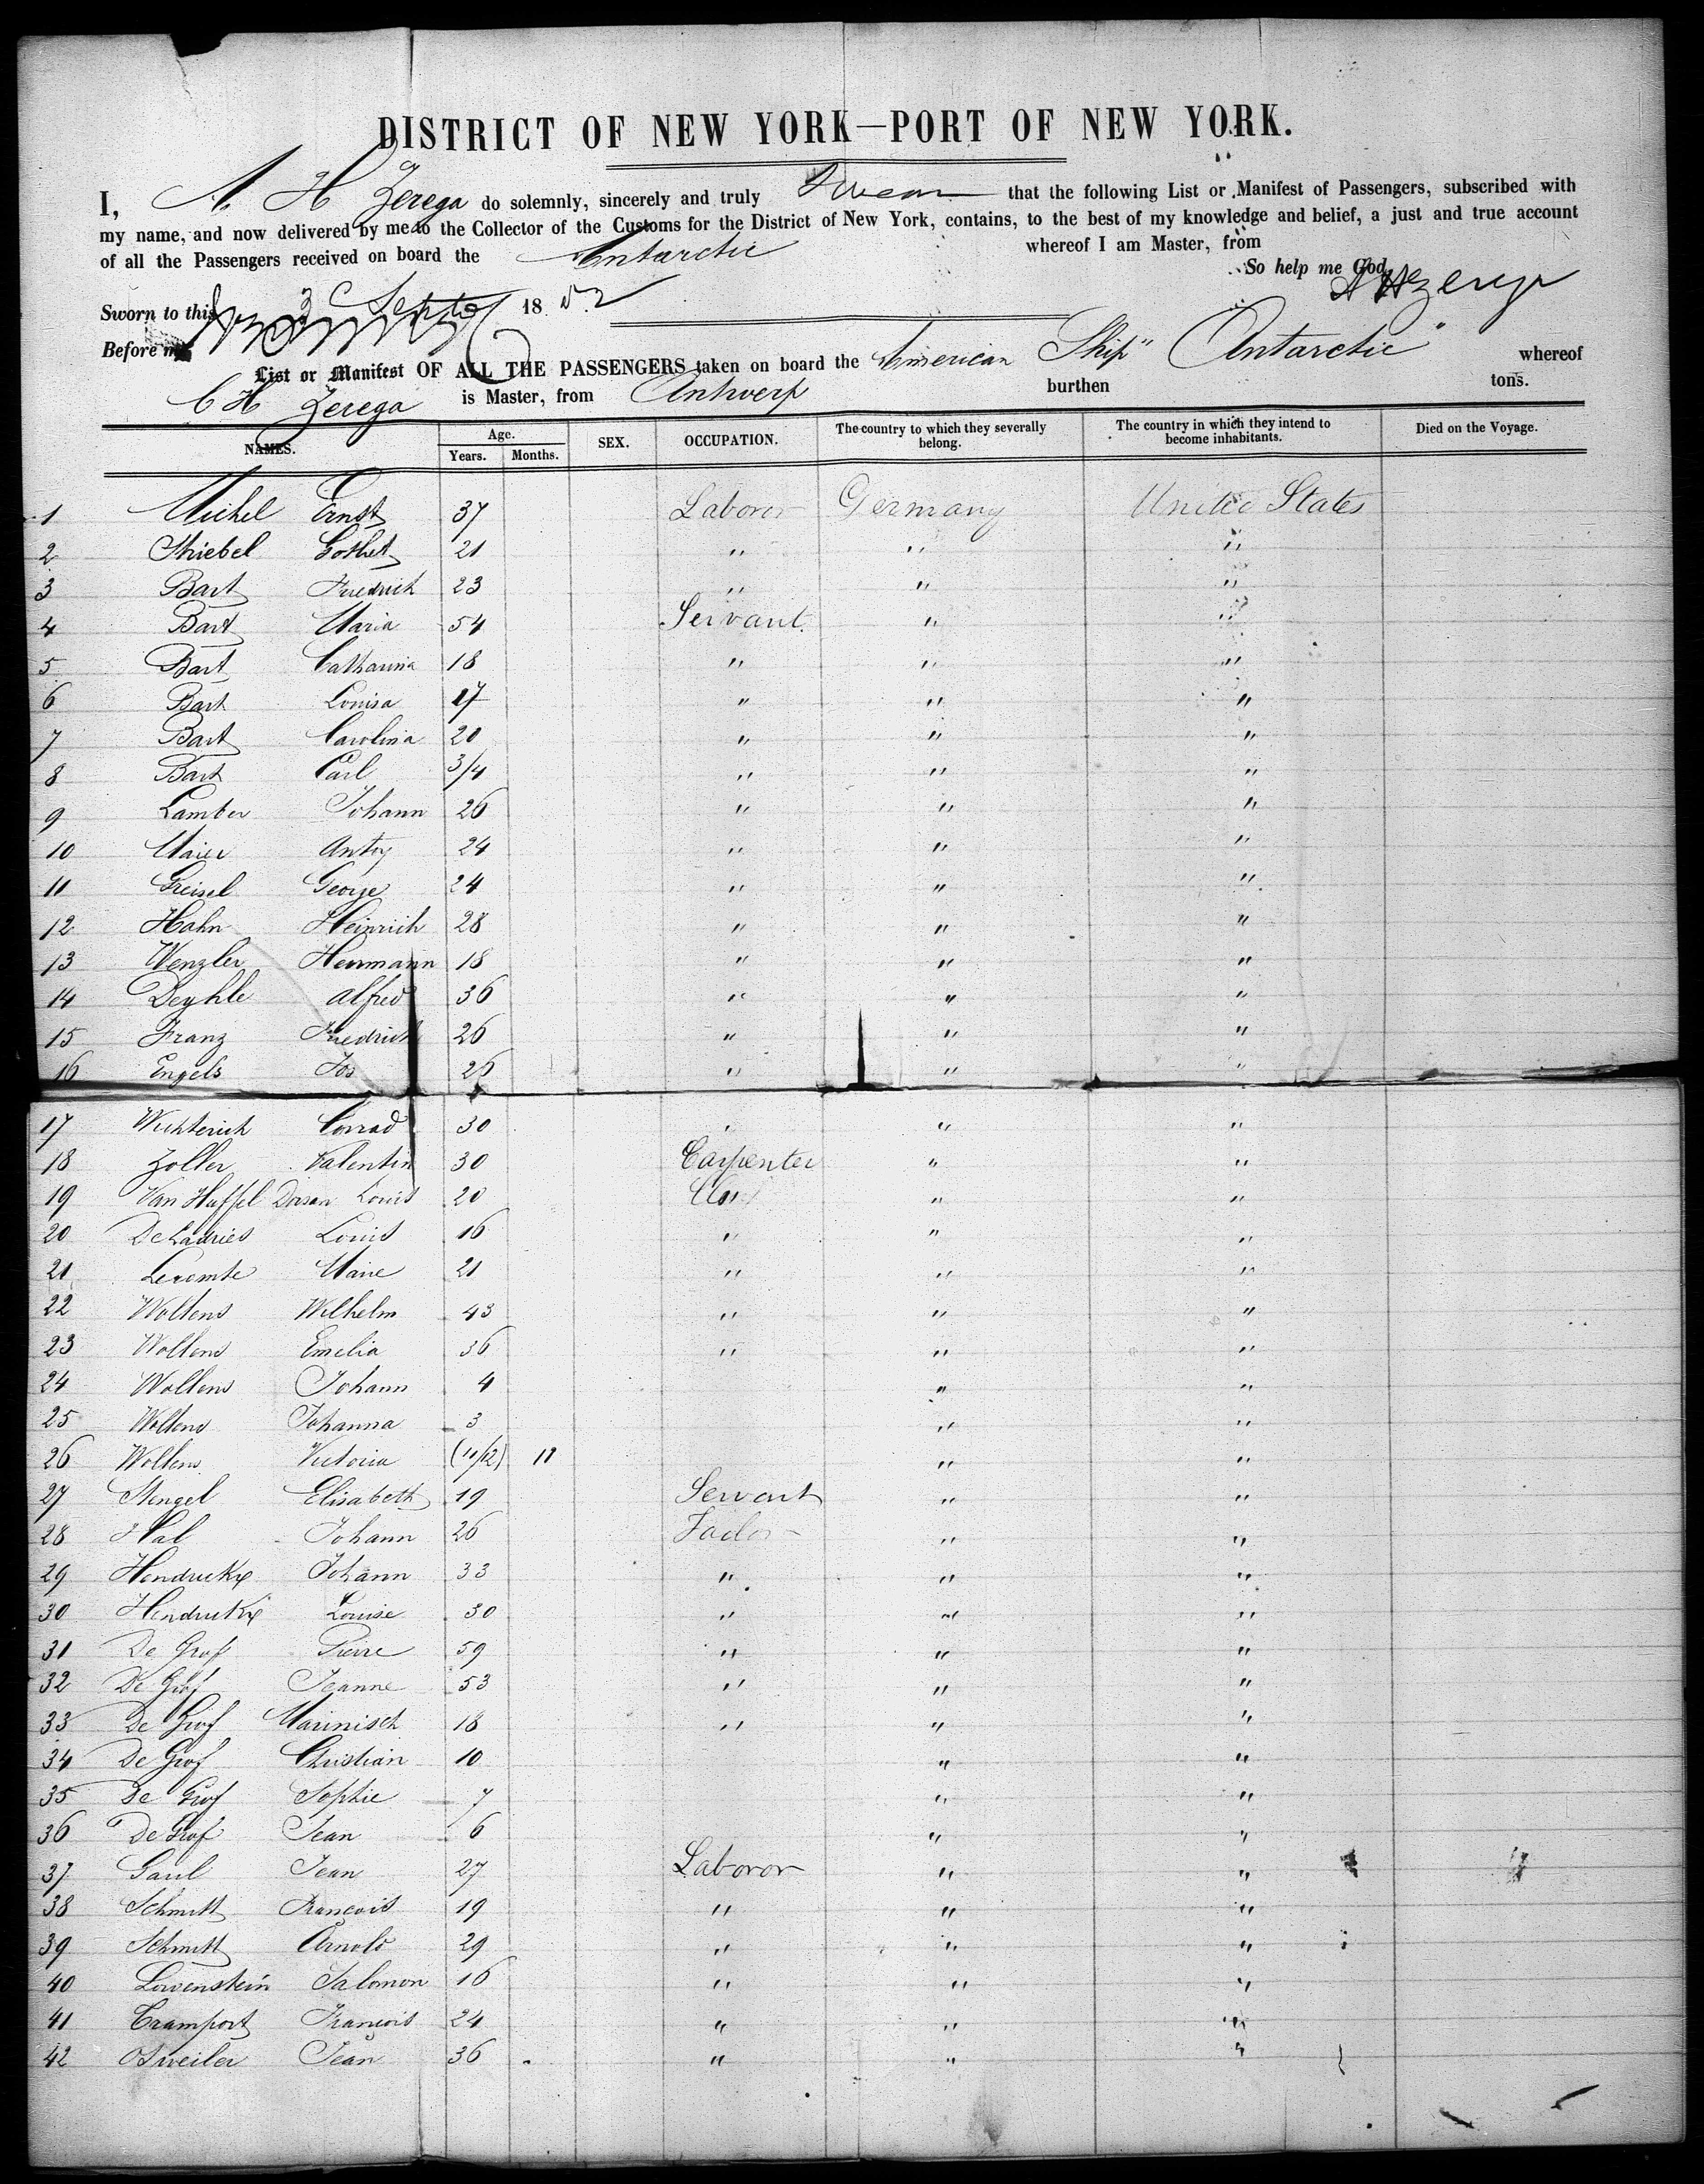 DISTRICT OF NEW YORK—PORT OF NEW YORK.
I, A H Zerega do solemnly, sincerely and truly Swear that the following List or Manifest of Passengers, subscribed with
my name, and now delivered by me to the Collector of the Customs for the District of New York, contains, to the best of my knowledge and belief, a just and true account
of all the Passengers received on board the Antarctic whereof I am Master, from
So help me God.
A H Zerega
Sworn to this 3 Septr 1852
Before me
List or Manifest OF ALL THE PASSENGERS taken on board the American Ship "Antarctic" whereof
C H Zerega is Master, from Antwerp burthen tons.
NAMES. Age. Years. Months. SEX. OCCUPATION. The country to which they severally belong. The country in which they intend to become inhabitants. Died on the Voyage.
1 Michel Ernst 37 Laboror Germany United States
2 Stiebel 21 " " "
3 Bart Friedrich 23 " " "
4 Bart Maria 54 Servant. " "
5 Bart Catharina 18 " " "
6 Bart Louisa 17 " " "
7 Bart Carolina 20 " " "
8 Bart Carl 3/4 " " "
9 Lamber Johann 26 " " "
10 Maier Antoy 24 " " "
11 Greisel George 24 " " "
12 Hahn Heinrich 28 " " "
13 Wenzler Herrmann 18 " " "
14 Deyhle Alfred 36 " " "
15 Franz Friedrich 26 " " "
16 Engels Jos 26 " " "
17 Wichterich Conrad 30 " " "
18 Zoller Valentin 30 Carpenter " "
19 Van Huffel Louis 20 " "
20 Louis 16 " " "
21 Lecomte Marie 21 " " "
22 Woltens Wilhelm 43 " " "
23 Woltens Emelia 36 " " "
24 Woltens Johann 4 " "
25 Woltens Johanna 3 " "
26 Woltens Victoria (11/12) 11 " "
27 Stengel Elisabeth 19 Servant " "
28 Hal Johann 26 " "
29 Hendrickx Johann 33 " " "
30 Hendrickx Louise 30 " " "
31 De Grof Pierre 59 " " "
32 De Grof Jeanne 53 " " "
33 De Grof 18 " " "
34 De Grof Christian 10 " "
35 De Grof Sophie 7 " "
36 De Grof Jean 6 " "
37 Gaul Jean 27 Laboror " "
38 Schmitt François 19 " " "
39 Schmitt Arnold 29 " " "
40 Lowenstein Salomon 16 " " "
41 Cramport François 24 " " "
42 Osweiler Jean 36 " " "